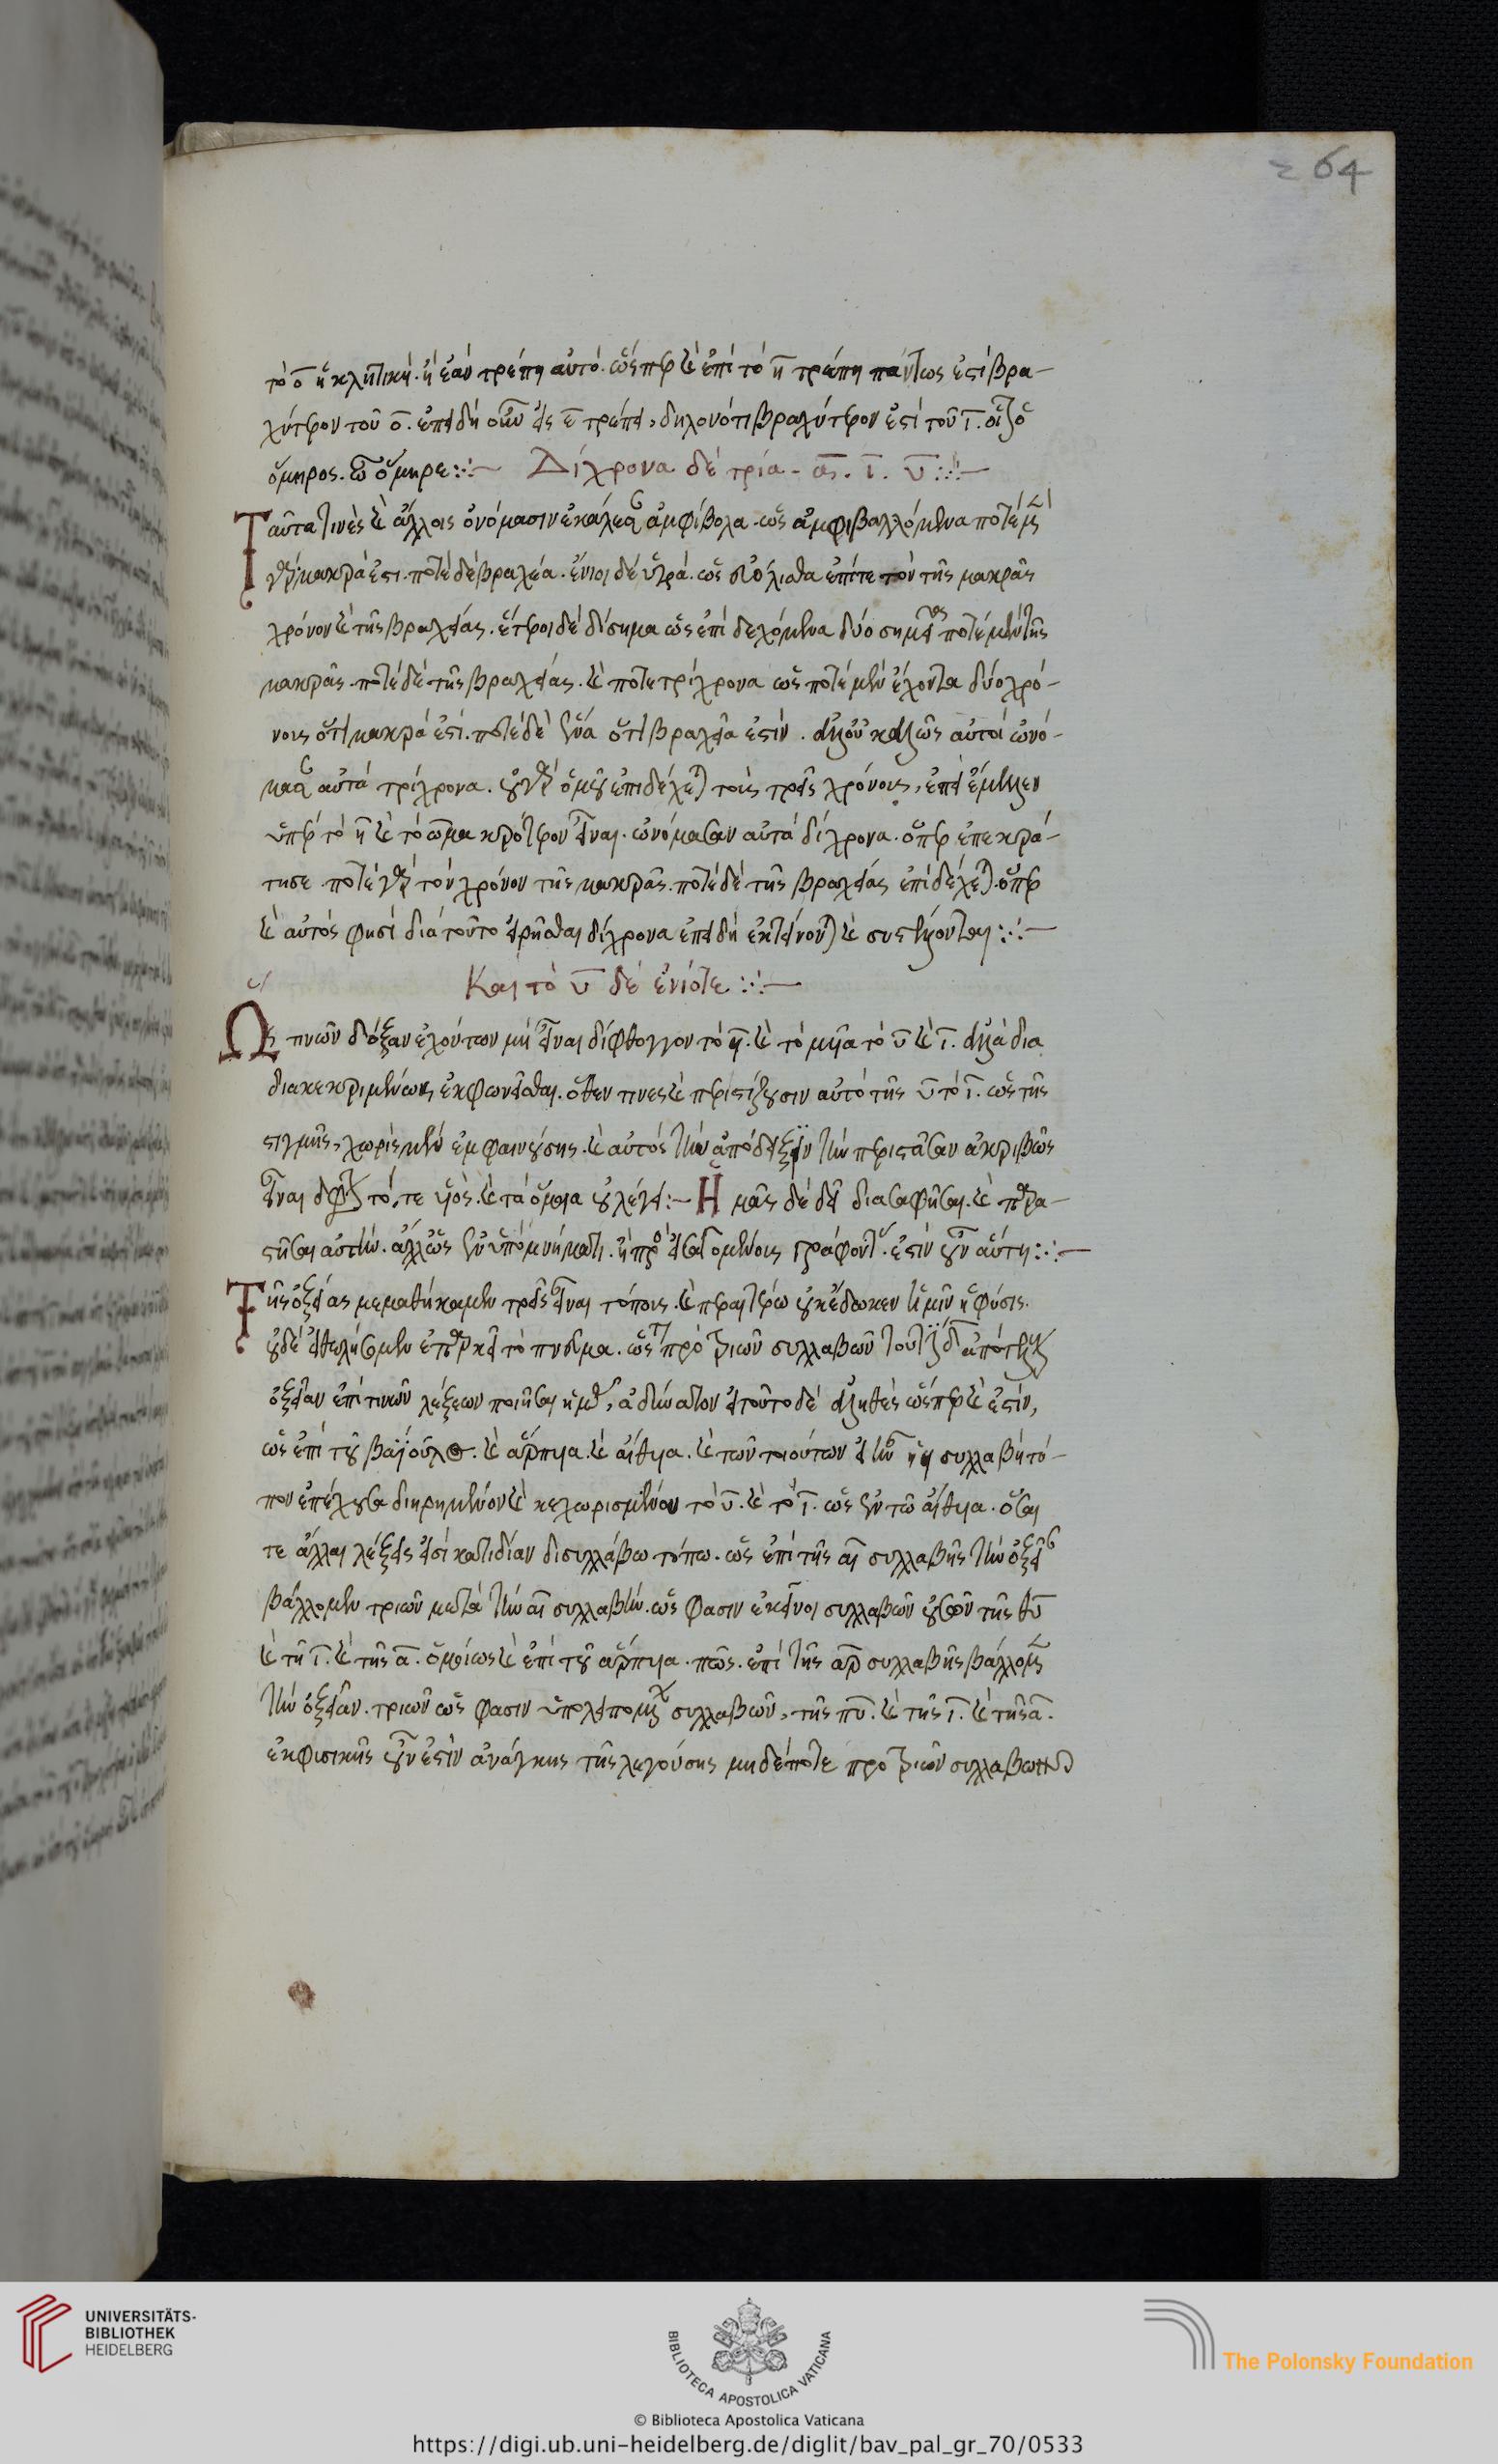 264
τὸ ο ἡ κλητικὴ. ἢ ἐὰν τρέπη αὐτό. ὥσπερ καὶ ἐπὶ τὸ η τρέπη πάντως ἐστὶ βρα-
χύτερον τοῦ ο. ἐπειδὴ οὖν εἰς ε τρέπει, δηλονότι βραχύτερον ἐστὶ τοῦ
ὅμηρος. ὦ ὅμηρε :·:- Δίχρονα δὲ τρία - α. ι. υ :·:-
Ταῦτα τινὲς καὶ ἄλλοις ὀνόμασιν ἐκάλεσαν ἀμφίβολα. ὡς ἀμφιβαλλόμενα ποτὲ μὲν
γὰρ μακρά ἐστι. ποτὲ δὲ βραχέα. ἔνιοι δὲ ὑγρά. ὡς ἐπί τε τὸν τῆς μακρᾶς
χρόνον καὶ τῆς βραχείας. ἕτεροι δὲ δίσημα ὡς ἐπιδεχόμενα δύο σημεῖα ποτὲ μὲν τῆς
μακρᾶς. ποτὲ δὲ τῆς βραχείας. καὶ ποτε τρίχρονα ὡς ποτὲ μὲν ἔχοντα δύο χρό-
νους ὅτι μακρά ἐστι. ποτὲ δὲ ἕνα ὅτι βραχεῖα ἐστίν. ἀλλ' οὐ καλῶς αὐτοὶ ὠνό-
μασαν αὐτὰ τρίχρονα. οὐ γὰρ ὁμοῦ ἐπιδέχεται τοὺς τρεῖς χρόνους, ἐπεὶ ἔμελλεν
ὑπὲρ τὸ η καὶ τὸ ω μακρότερον εἶναι. ὠνόμασαν αὐτὰ δίχρονα. ὅπερ ἐπεκρά-
τησε. ποτὲ γὰρ τὸν χρόνον τῆς μακρᾶς. ποτὲ δὲ τῆς βραχείας ἐπιδέχεται. ὅπερ
καὶ αὐτός φησὶ διὰ τοῦτο εἰρῆσθαι δίχρονα ἐπειδὴ ἐκτείνονται καὶ συστέλλονται :·:-
Και τὸ υ δὲ ἐνίοτε :·:-
Ως τινῶν δόξαν ἐχόντων μὴ εἶναι δίφθογγον τὸ καὶ τὸ μυῖα τὸ υ καὶ ι. ἀλλὰ δια
διακεκριμένως ἐκφωνεῖσθαι. ὅθεν τινες καὶ περιστίζουσιν αὐτὸ τῆς υ τὸ ι. ὡς τῆς
στιγμῆς, χωρὶς μὲν ἐμφαινούσης. καὶ αὐτὸς τὴν ἀπόδειξιν τὴν περὶ ἀκριβῶς
εἶναι τό, τε υἱὸς. καὶ τὰ ὅμοια οὐ λέγει :- Ημᾶς δὲ δεῖ διασαφῆσαι. καὶ παρα-
στῆσαι αὐτὴν. ἄλλως ἐν ὑπομνήματι. ἢ πρὸς εἰσαγομένοις γράφοντας. ἐστὶν οὖν αὕτη :·:-
Τῆς ὀξείας μεμαθήκαμεν τρεῖς εἶναι τόπους. καὶ περαιτέρω οὐκ ἔδωκεν ἡμῖν ἡ φύσις.
οὐδὲ ἐθελήσομεν ἐπαρκεῖ τὸ πνεῦμα. ὥστε πρὸ τριῶν συλλαβῶν
ὀξεῖαν ἐπί τινων λέξεων ποιῆσαι ἡμᾶς, ἀδύνατον εἰ τοῦτο δὲ ἀληθὲς ὥσπερ καὶ ἐστίν,
ὡς ἐπὶ τοῦ βαϊοῦλος. καὶ ἅρπυια. καὶ αἴθυια. καὶ τῶν τοιούτων εἰ ἦν ἡ υι συλλαβὴ τό-
πον ἐπέχουσα διῃρημένον καὶ κεχωρισμένον τὸ υ. καὶ τὸ ι. ὡς ἐν τῶ αἴθυια. ὅσαι
τε ἄλλαι λέξεις εἰσὶ κατιδίαν δισυλλάβω τόπω. ὡς ἐπὶ τῆς αι συλλαβῆς τὴν ὀξεῖαν
βάλλομεν τριῶν μετὰ τὴν αι συλλαβήν. ὥς φασιν ἐκεῖνοι συλλαβῶν οὐσῶν τῆς θυ
καὶ τῆς ι. καὶ τῆς α. ὁμοίως καὶ ἐπὶ τοῦ ἅρπυια. πῶς. ἐπὶ τῆς αρ συλλαβῆς βάλλομεν
τὴν ὀξεῖαν. τριῶν ὥς φασιν ὑπολειπομένων συλλαβῶν, τῆς πυ. καὶ τῆς ι. καὶ τῆς α.
ἐκ φυσικῆς οὖν ἐστὶν ἀνάγκης τῆς λεγούσης μηδέποτε πρὸ τριῶν συλλαβων
UNIVERSITÄTS-
BIBLIOTHEK
HEIDELBERG
BIBLIOTECA APOSTOLICA VATICANA
The Polonsky Foundation
© Biblioteca Apostolica Vaticana
https://digi.ub.uni-heidelberg.de/diglit/bav_pal_gr_70/0533